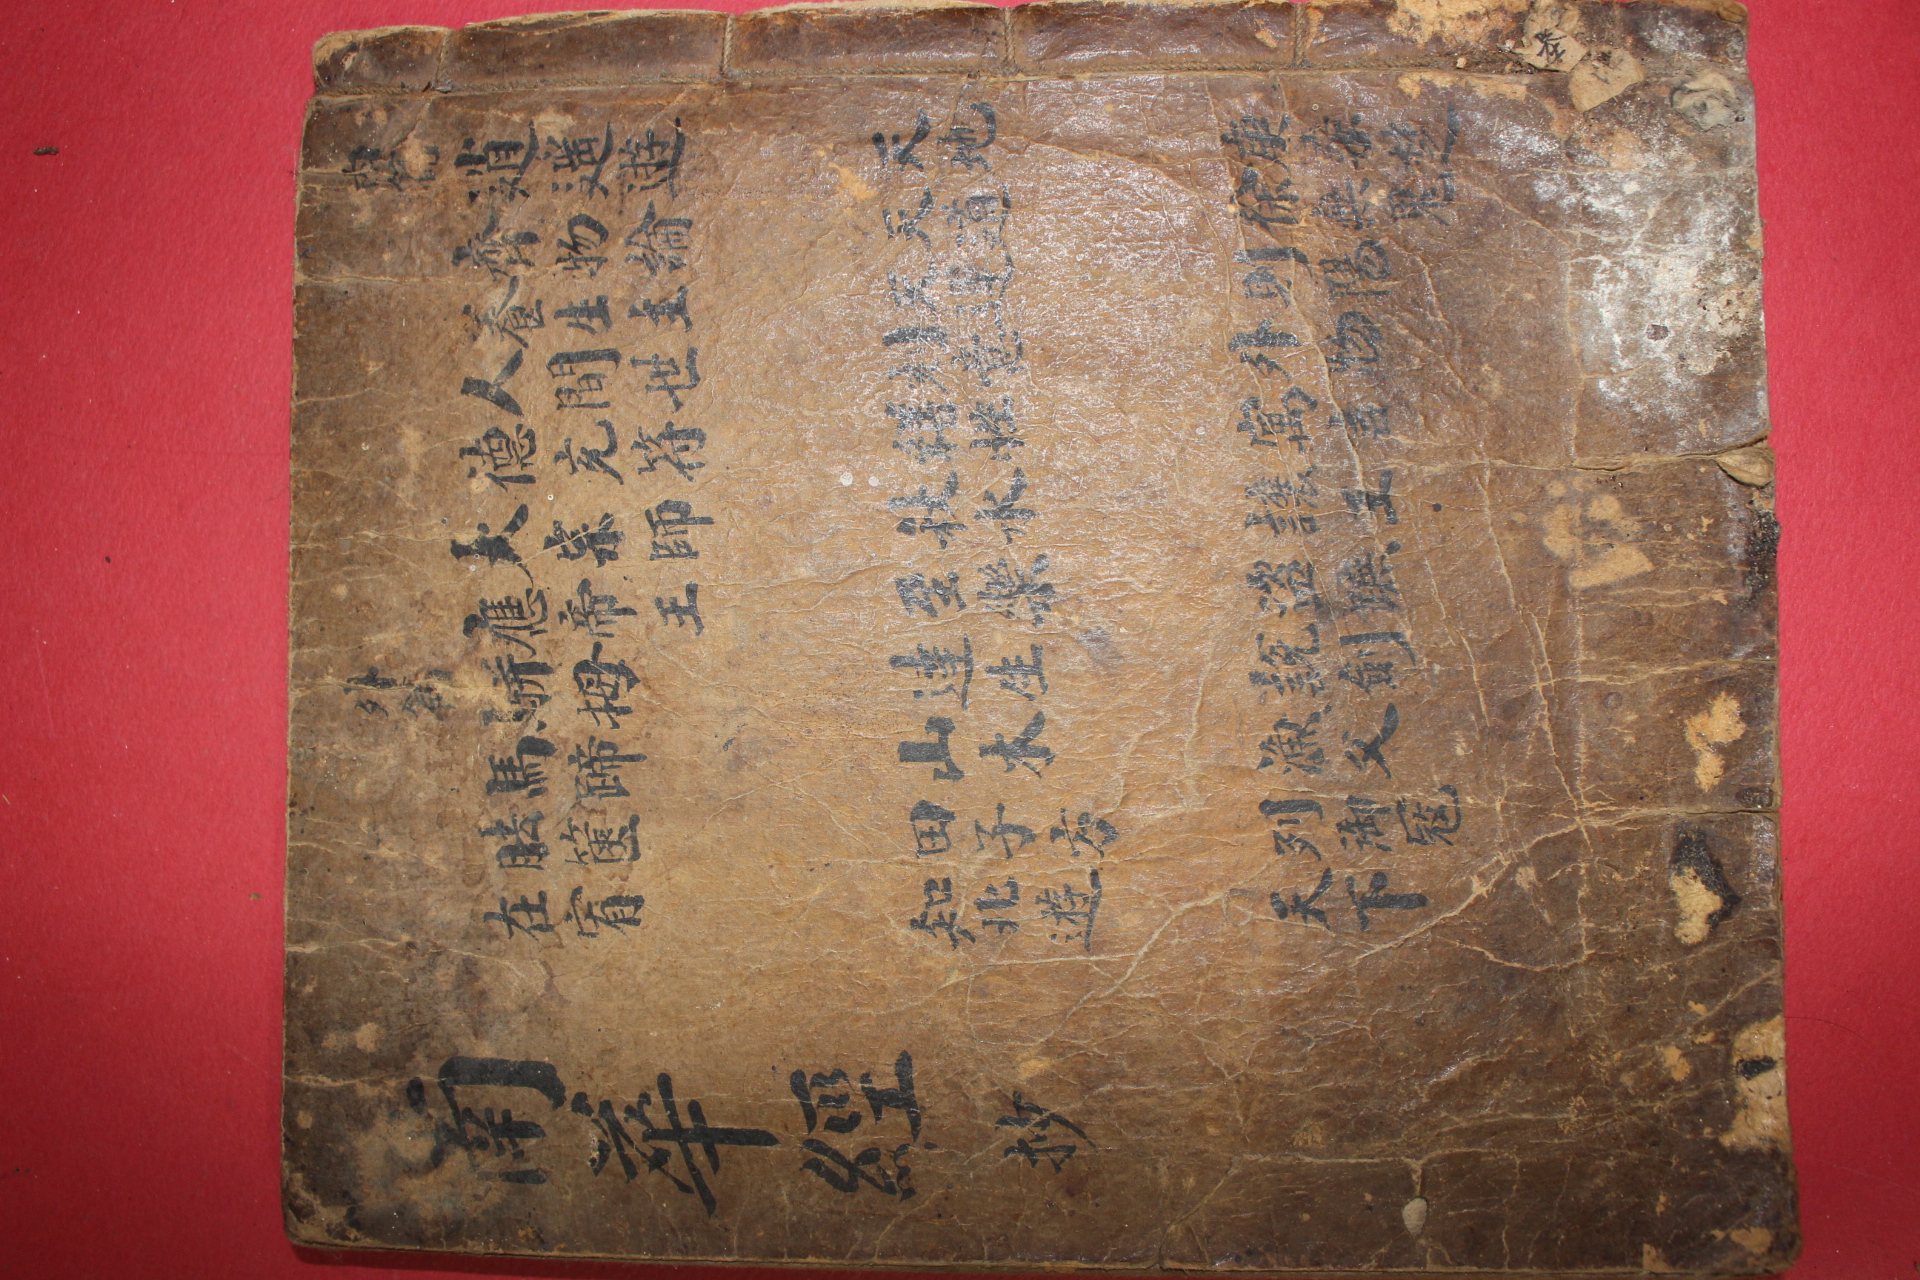 內篇
逍遥遊
齊物論
養生主
人間世
德充符
大宗師
應帝王
外篇
駢拇
馬蹄
胠篋
在宥
天地
天道
天運
刻意
繕性
秋水
至樂
達生
山木
田子方
知北遊
庚桑楚
徐無鬼
則陽
外物
寓言
讓王
盜跖
說劍
漁父
列御寇
天下
南華經 抄